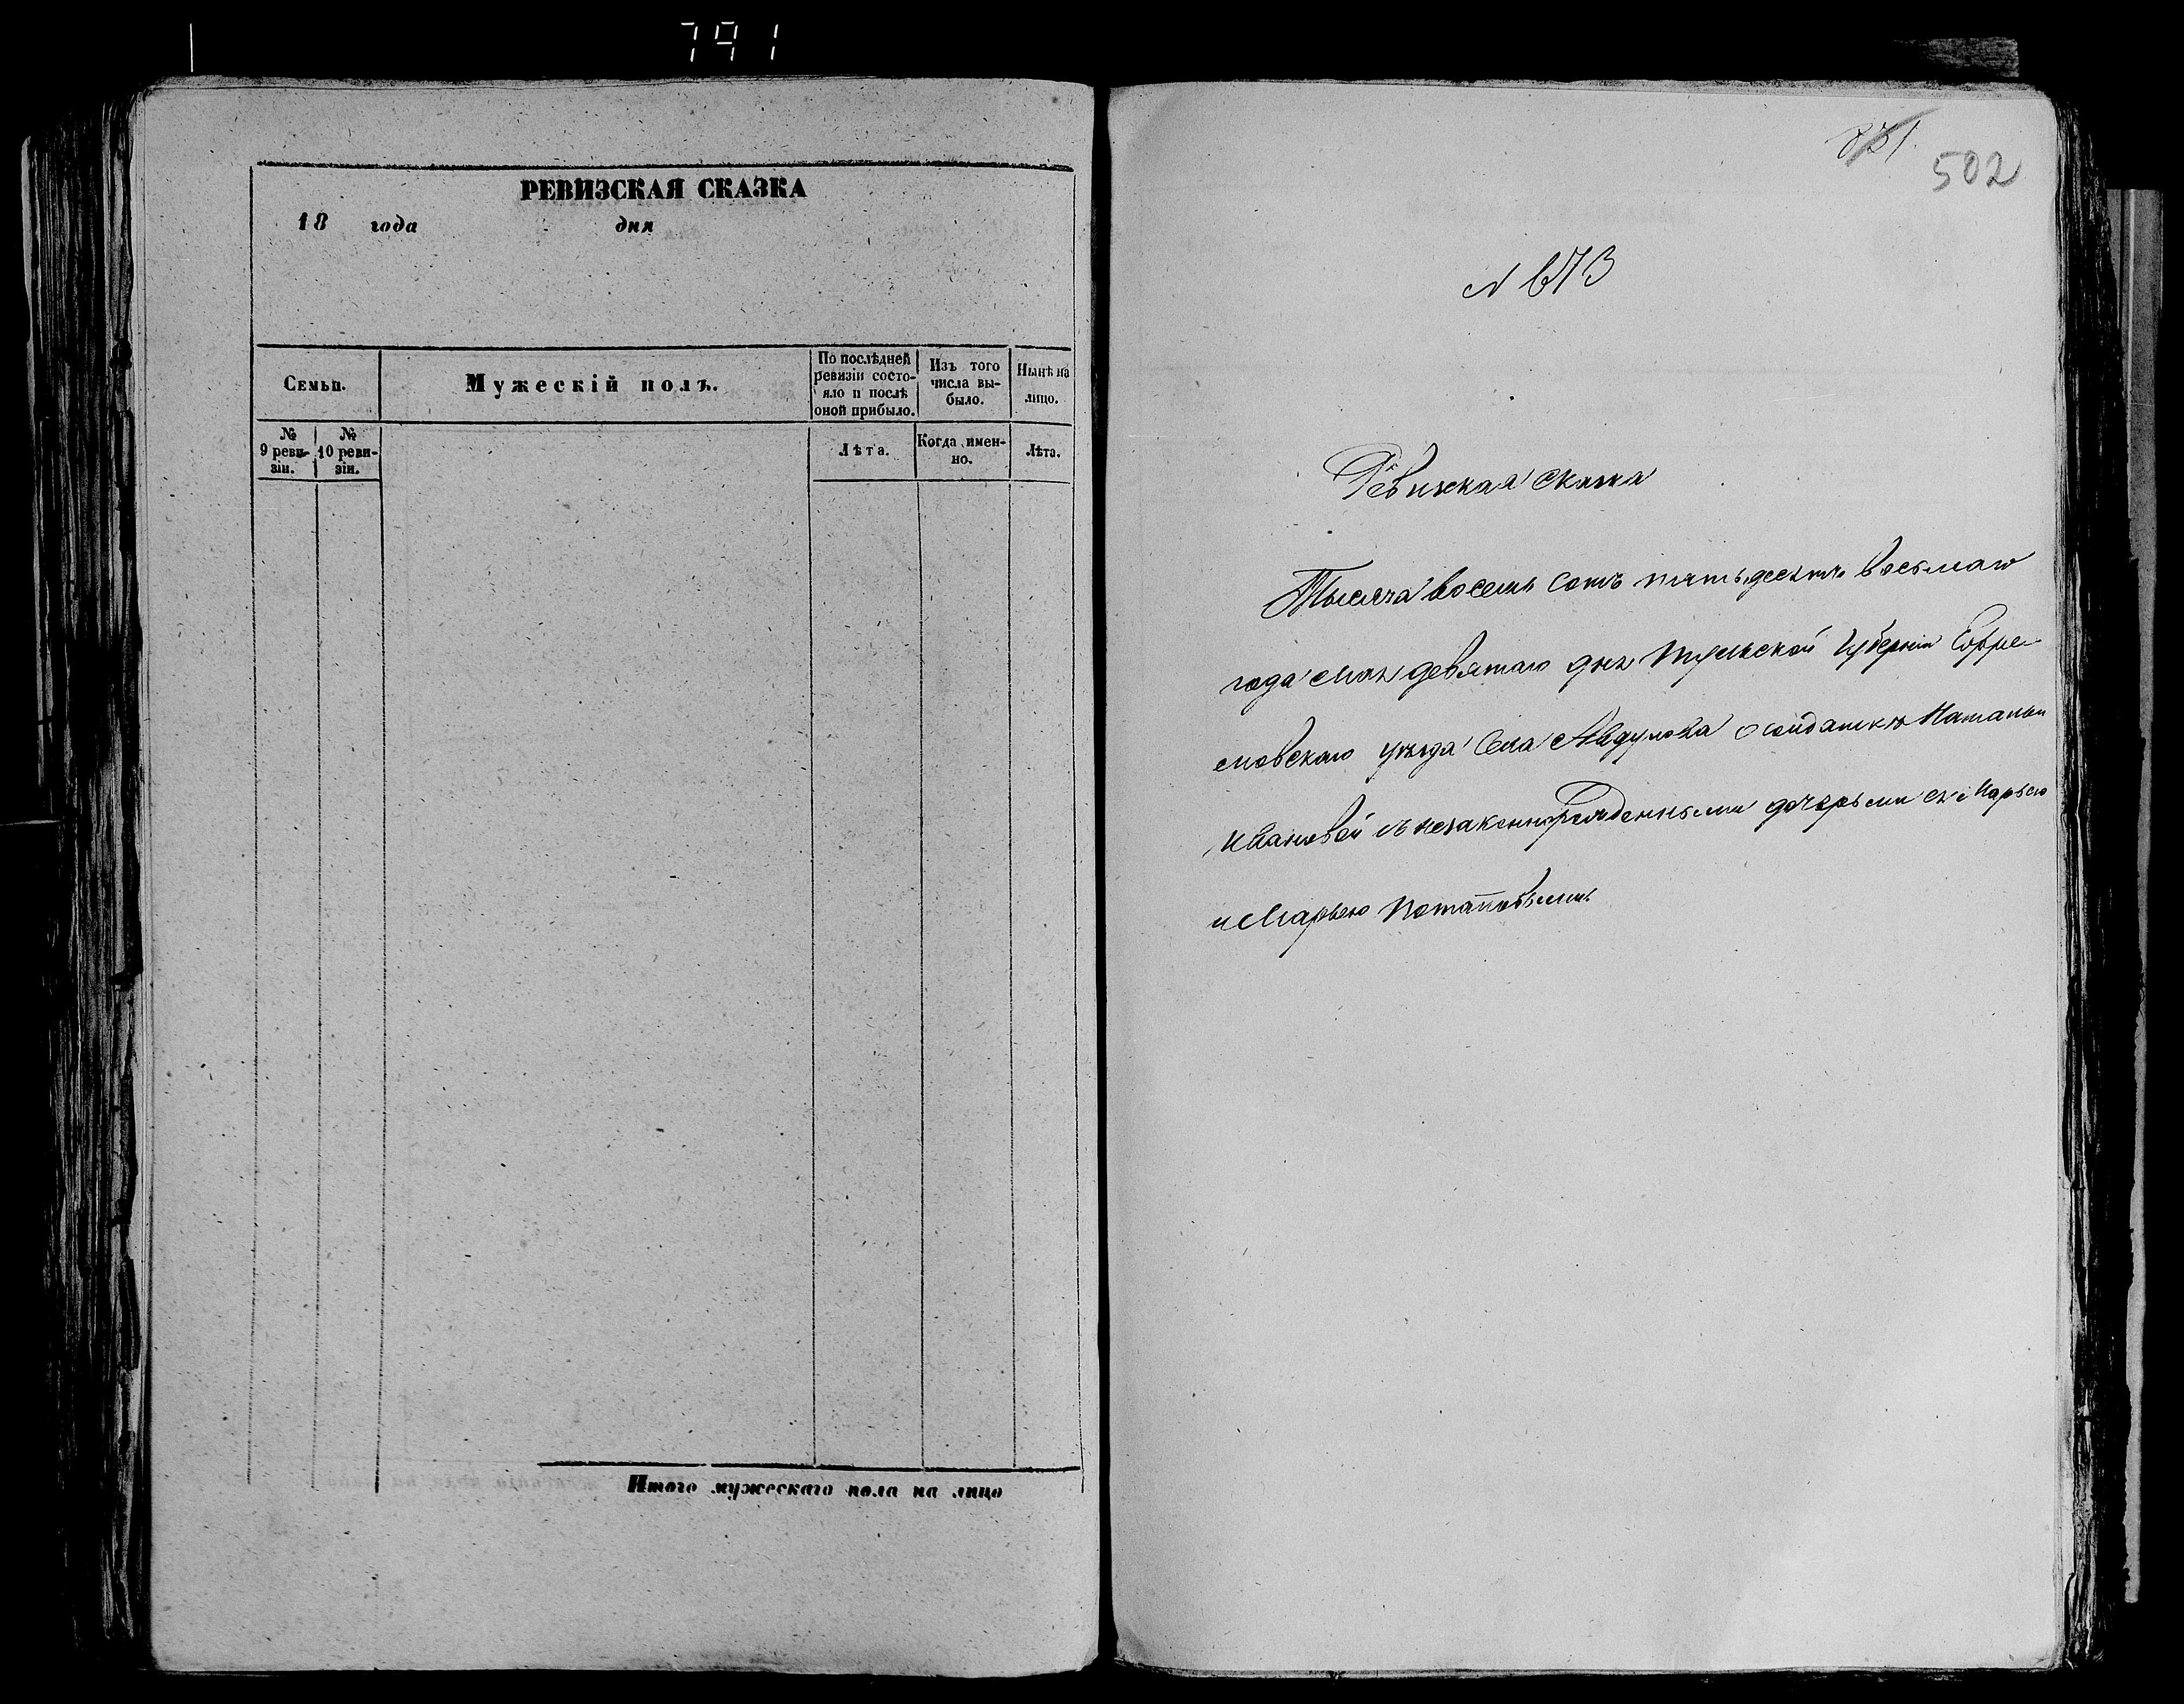 791
РЕВИЗСКАЯ СКАЗКА
18 года дня
Семьи.
Мужескій полъ.
По послѣдней ревизіи состояло и послѣ оной прибыло.
Изъ того числа выбыло.
Нынѣ на лицо.
№ 9 ревизіи.
№ 10 ревизіи.
Лѣта.
Когда именно.
Лѣта.
Итого мужескаго пола на лицо
831.
502
N 673
Ревизская сказка
Тысяча восемь сотъ пятьдесятъ восьмаго
года мая девятаго дня Тульской Губерніи Ефре-
мовскаго уѣзда Села Авдулова о солдаткѣ Натальи
Ивановой съ незаконнорожденными дочерьми ея Марьею
и Марьею Потаповыми